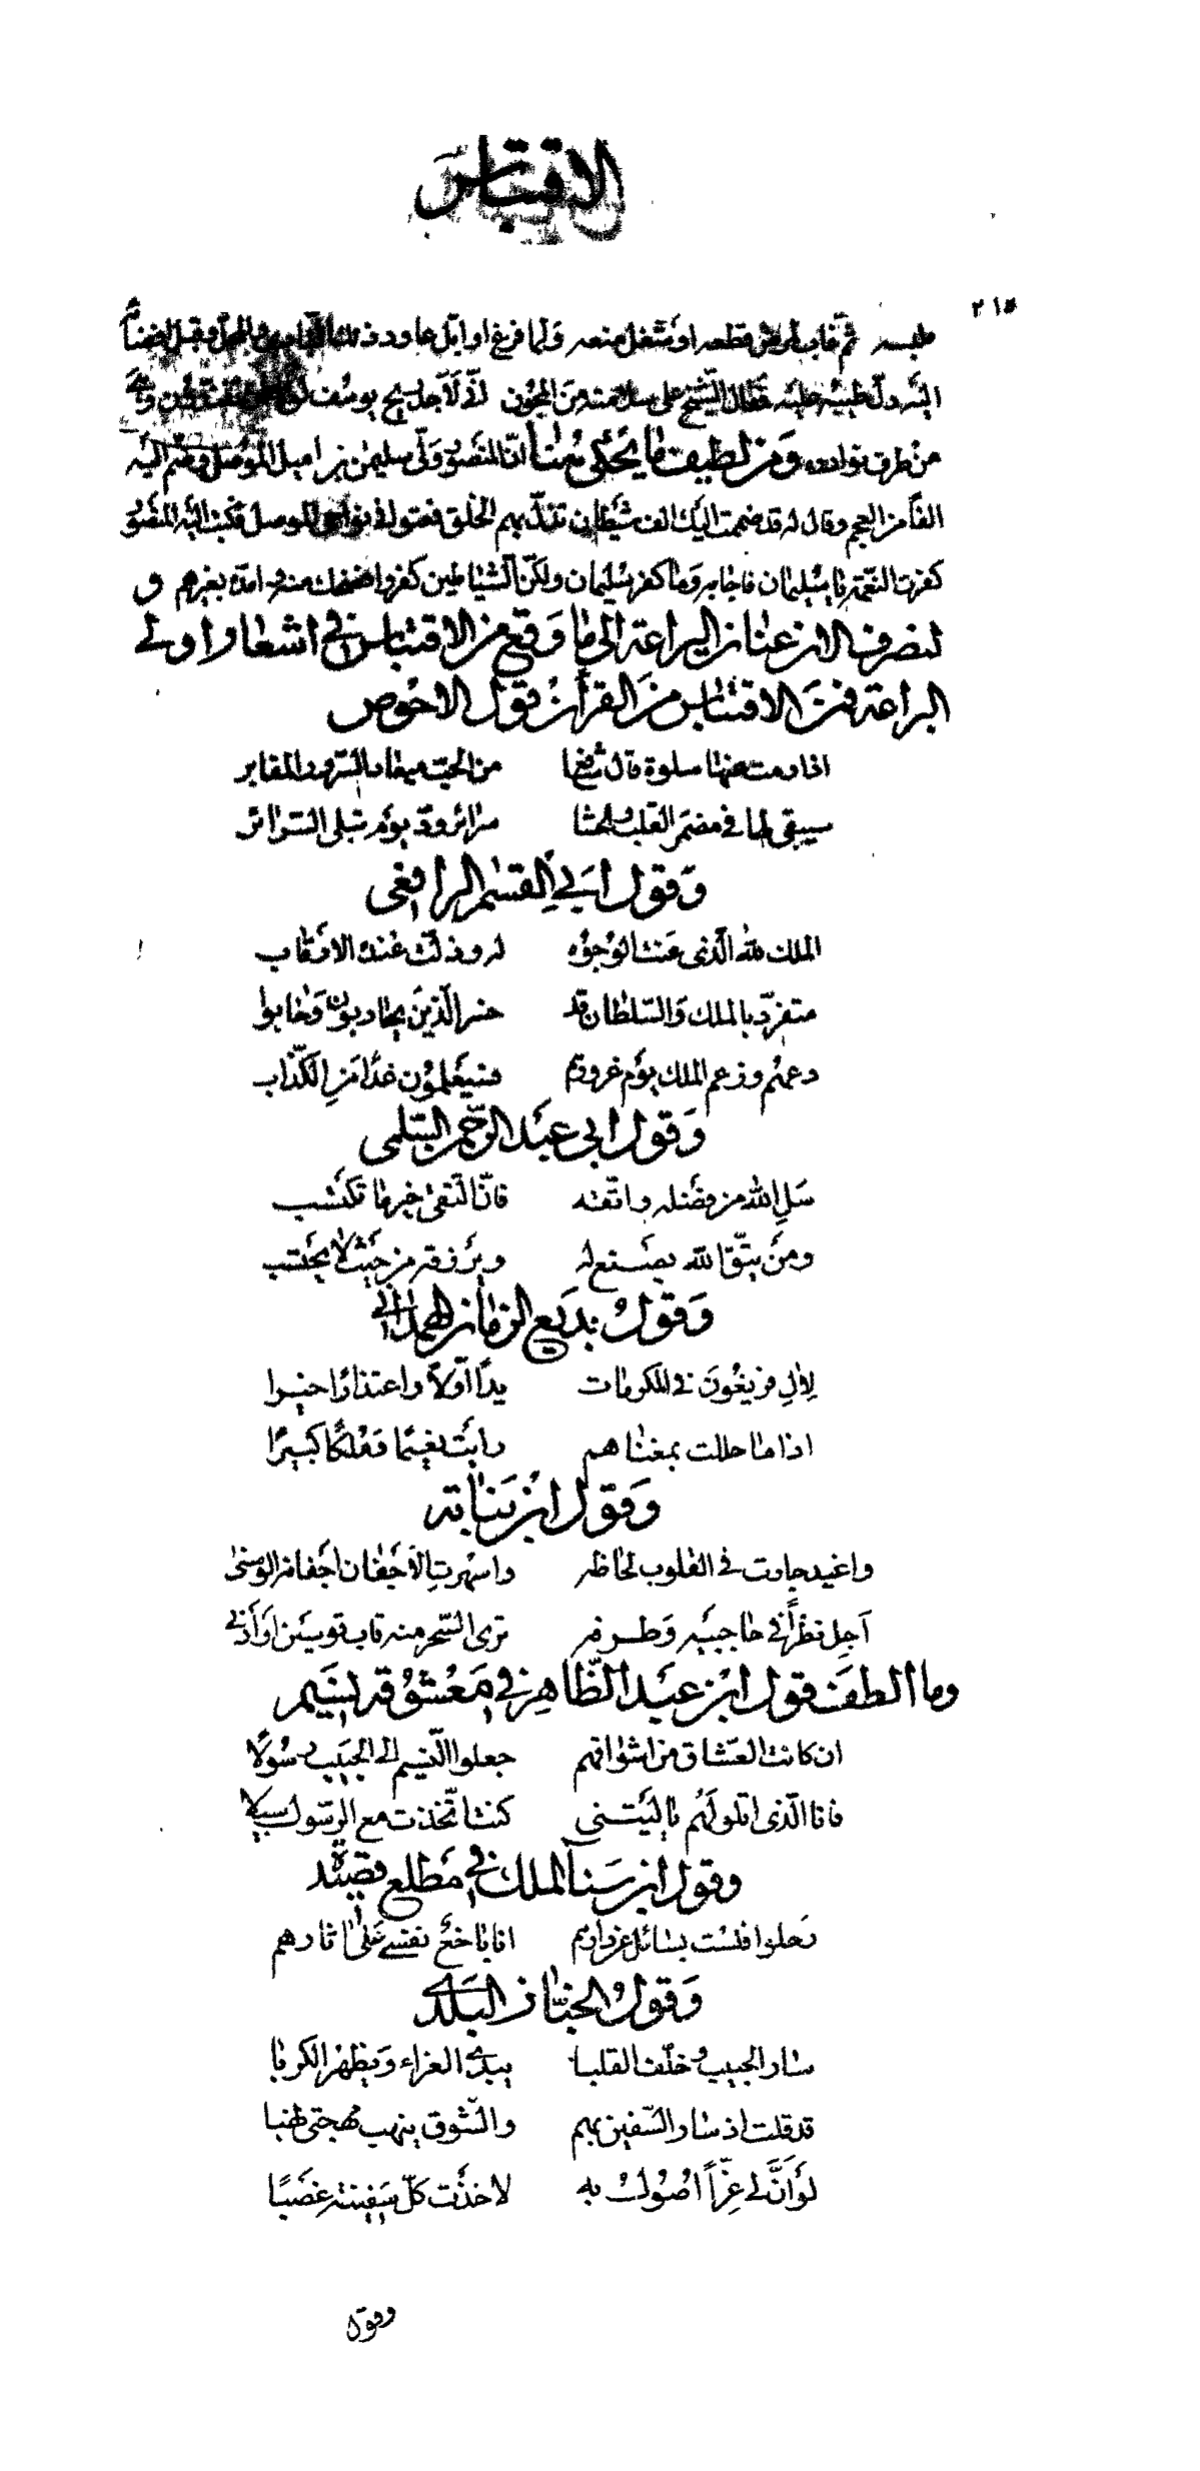 الاقتباس
٢١٥
مجلسه ثم غاب لمرض قطعه او شغل منعه ولما فرغ اوابل عاود فقبل
اليه فقال الشيخ على سلامته من المجون انى لاجد ريح يوسف لولا ان تفندون وهى
من طرف نوادره ومن لطيف ما يحكى هنا ان المنصور ولّى سليمن بن راميل الموصل وضم اليه
الفاً من العجم وقال له قد ضممت اليك الف شيطان تذل بهم الخلق فعتوا فى نواحى الموصل فكتب اليه المنصور
كفرت النعمة يا سليمان فاجابه وما كفر سليمان ولكنّ الشياطين كفروا فضحك منه وامده بغيرهم و
لنصرف الان عنان اليراعة الى ما وقع من الاقتباس فى اشعار اولى
البراعة فمن الاقتباس من القرآن قول الاحوص
اذا رمت عنها سلوة قال شافع من الحب ميعاد السّلو المقابر
سيبقى لها فى مضمر القلب والحشا سرائر ودّ يوم تبلى السّرائر
وقول ابى القسم الرافعى
الملك لله الّذى عنت الوجوه له وذلّت عنده الارباب
متفرّد بالملك والسّلطان قد خسر الّذين يحاربوه وخابوا
دعهم وزعم الملك يوم غرورهم فسيعلمون غداً من الكذّاب
وقول ابى عبد الرّحمن السّلمى
سل الله من فضله واتّقه فانّ التّقى خير ما تكتسب
ومن يتّق الله يصنع له ويرزقه من حيث لا يحتسب
وقول بديع الزمان الهمدانى
لآل فريغون فى المكرمات يداً اوّلاً واعتذاراً اخيرا
اذا ما حللت بمغناهم رايت نعيماً وملكاً كبيراً
وقول ابن نباتة
واغيد جارت فى القلوب لحاظه واسهرت الاجفان اجفانه الوسنى
اجل نظراً فى حاجبيه وطرفه ترى السّحر منه قاب قوسين او أدنى
وما الطف قول ابن عبد الظّاهر فى معشوقه نسيم
ان كانت العشّاق من اشواقهم جعلوا النّسيم الى الحبيب رسولاً
فانا الّذى اتلو لهم يا ليتنى كنت اتّخذت مع الرّسول سبيلا
وقول ابن سنا الملك فى مطلع قصيدة
رحلوا فلست بسائل عن دارهم انا باخع نفسى على اثارهم
وقول الخبّاز البلدى
سار الحبيب وخلّف القلبا يبدى العزاء ويظهر الكربا
قد قلت اذ سار السّفين بهم والشّوق ينهب مهجتى نهبا
لو أنّ لى عزّاً اصول به لاخذت كلّ سفينة غصباً
وقوله